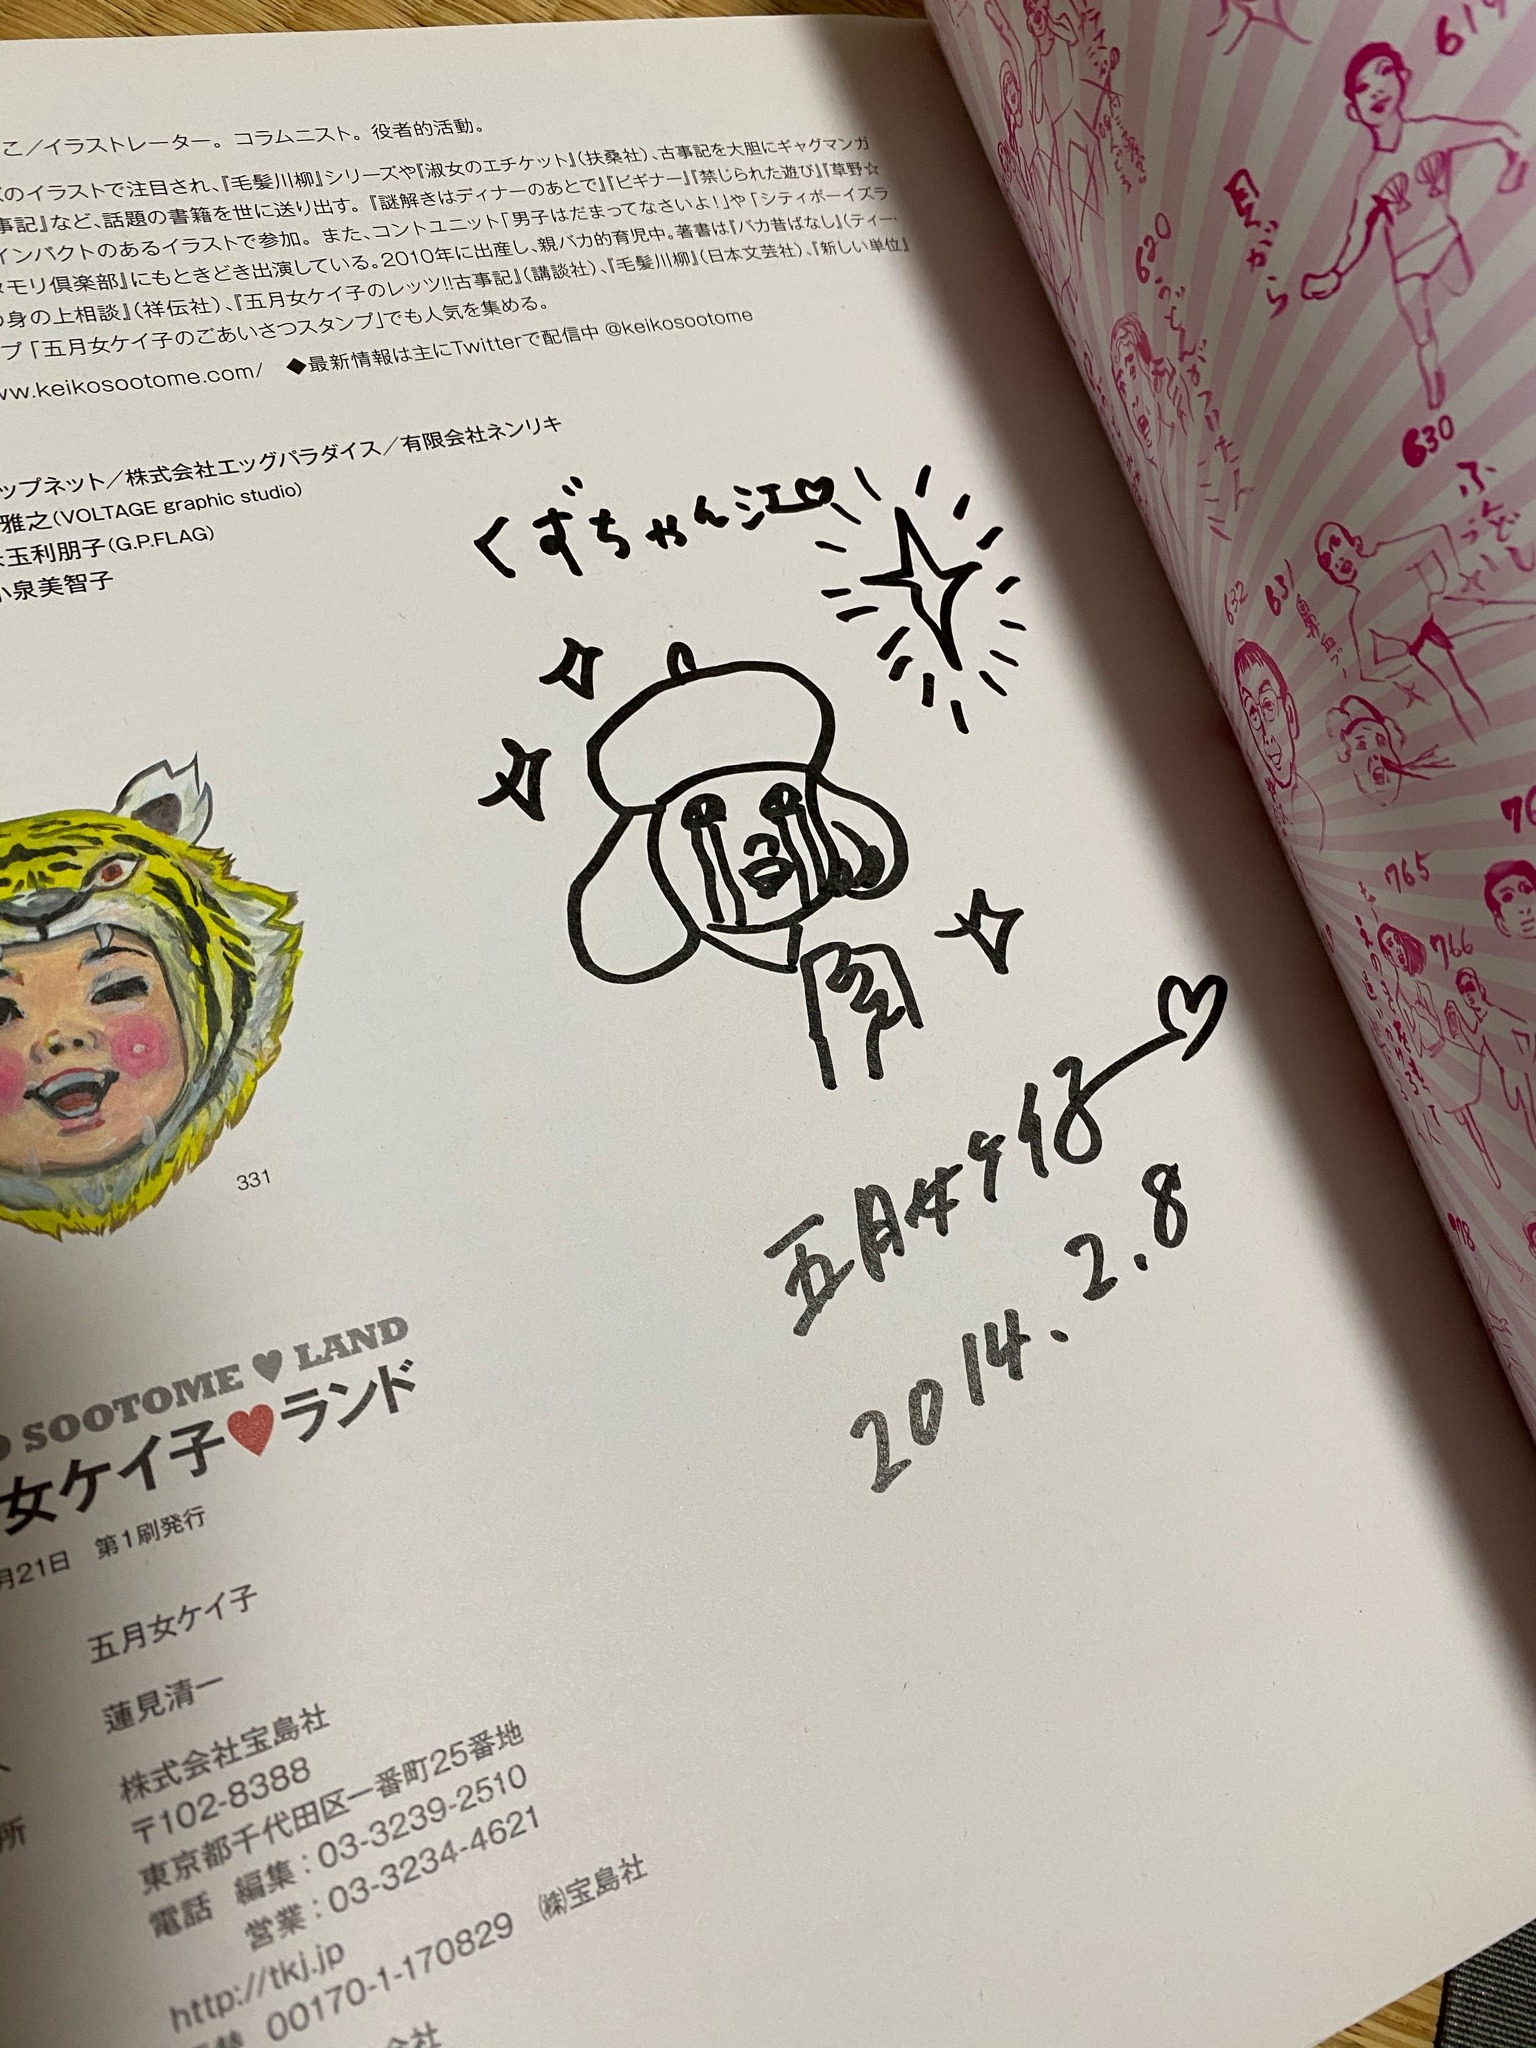 こ／イラストレーター。コラムニスト。役者的活動。
のイラストで注目され、『毛髪川柳』シリーズや『淑女のエチケット』（扶桑社）、古事記を大胆にギャグマンガ
事記』など、話題の書籍を世に送り出す。『謎解きはディナーのあとで』『ビギナー』『禁じられた遊び』『草野☆
インパクトのあるイラストで参加。また、コントユニット「男子はだまってなさいよ！」や「シティボーイズラ
モリ倶楽部』にもときどき出演している。2010年に出産し、親バカ的育児中。著書は『バカ昔ばなし』（ティー・
の身の上相談』（祥伝社）、『五月女ケイ子のレッツ!!古事記』（講談社）、『毛髪川柳』（日本文芸社）、『新しい単位』
プ「五月女ケイ子のごあいさつスタンプ」でも人気を集める。
ww.keikosootome.com/ ◆最新情報は主にTwitterで配信中 @keikosootome
ップネット／株式会社エッグパラダイス／有限会社ネンリキ
雅之（VOLTAGE graphic studio）
玉利朋子（G.P.FLAG）
小泉美智子
くずちゃん江♡
五月女ケイ子♡
2014.2.8
331
SOOTOME♥LAND
女ケイ子♥ランド
月21日 第1刷発行
五月女ケイ子
蓮見清一
株式会社宝島社
〒102-8388
東京都千代田区一番町25番地
電話 編集：03-3239-2510
営業：03-3234-4621
http://tkj.jp
00170-1-170829 ㈱宝島社
619
620
630
ふんどし
631
鼻血ブー
632
765
766